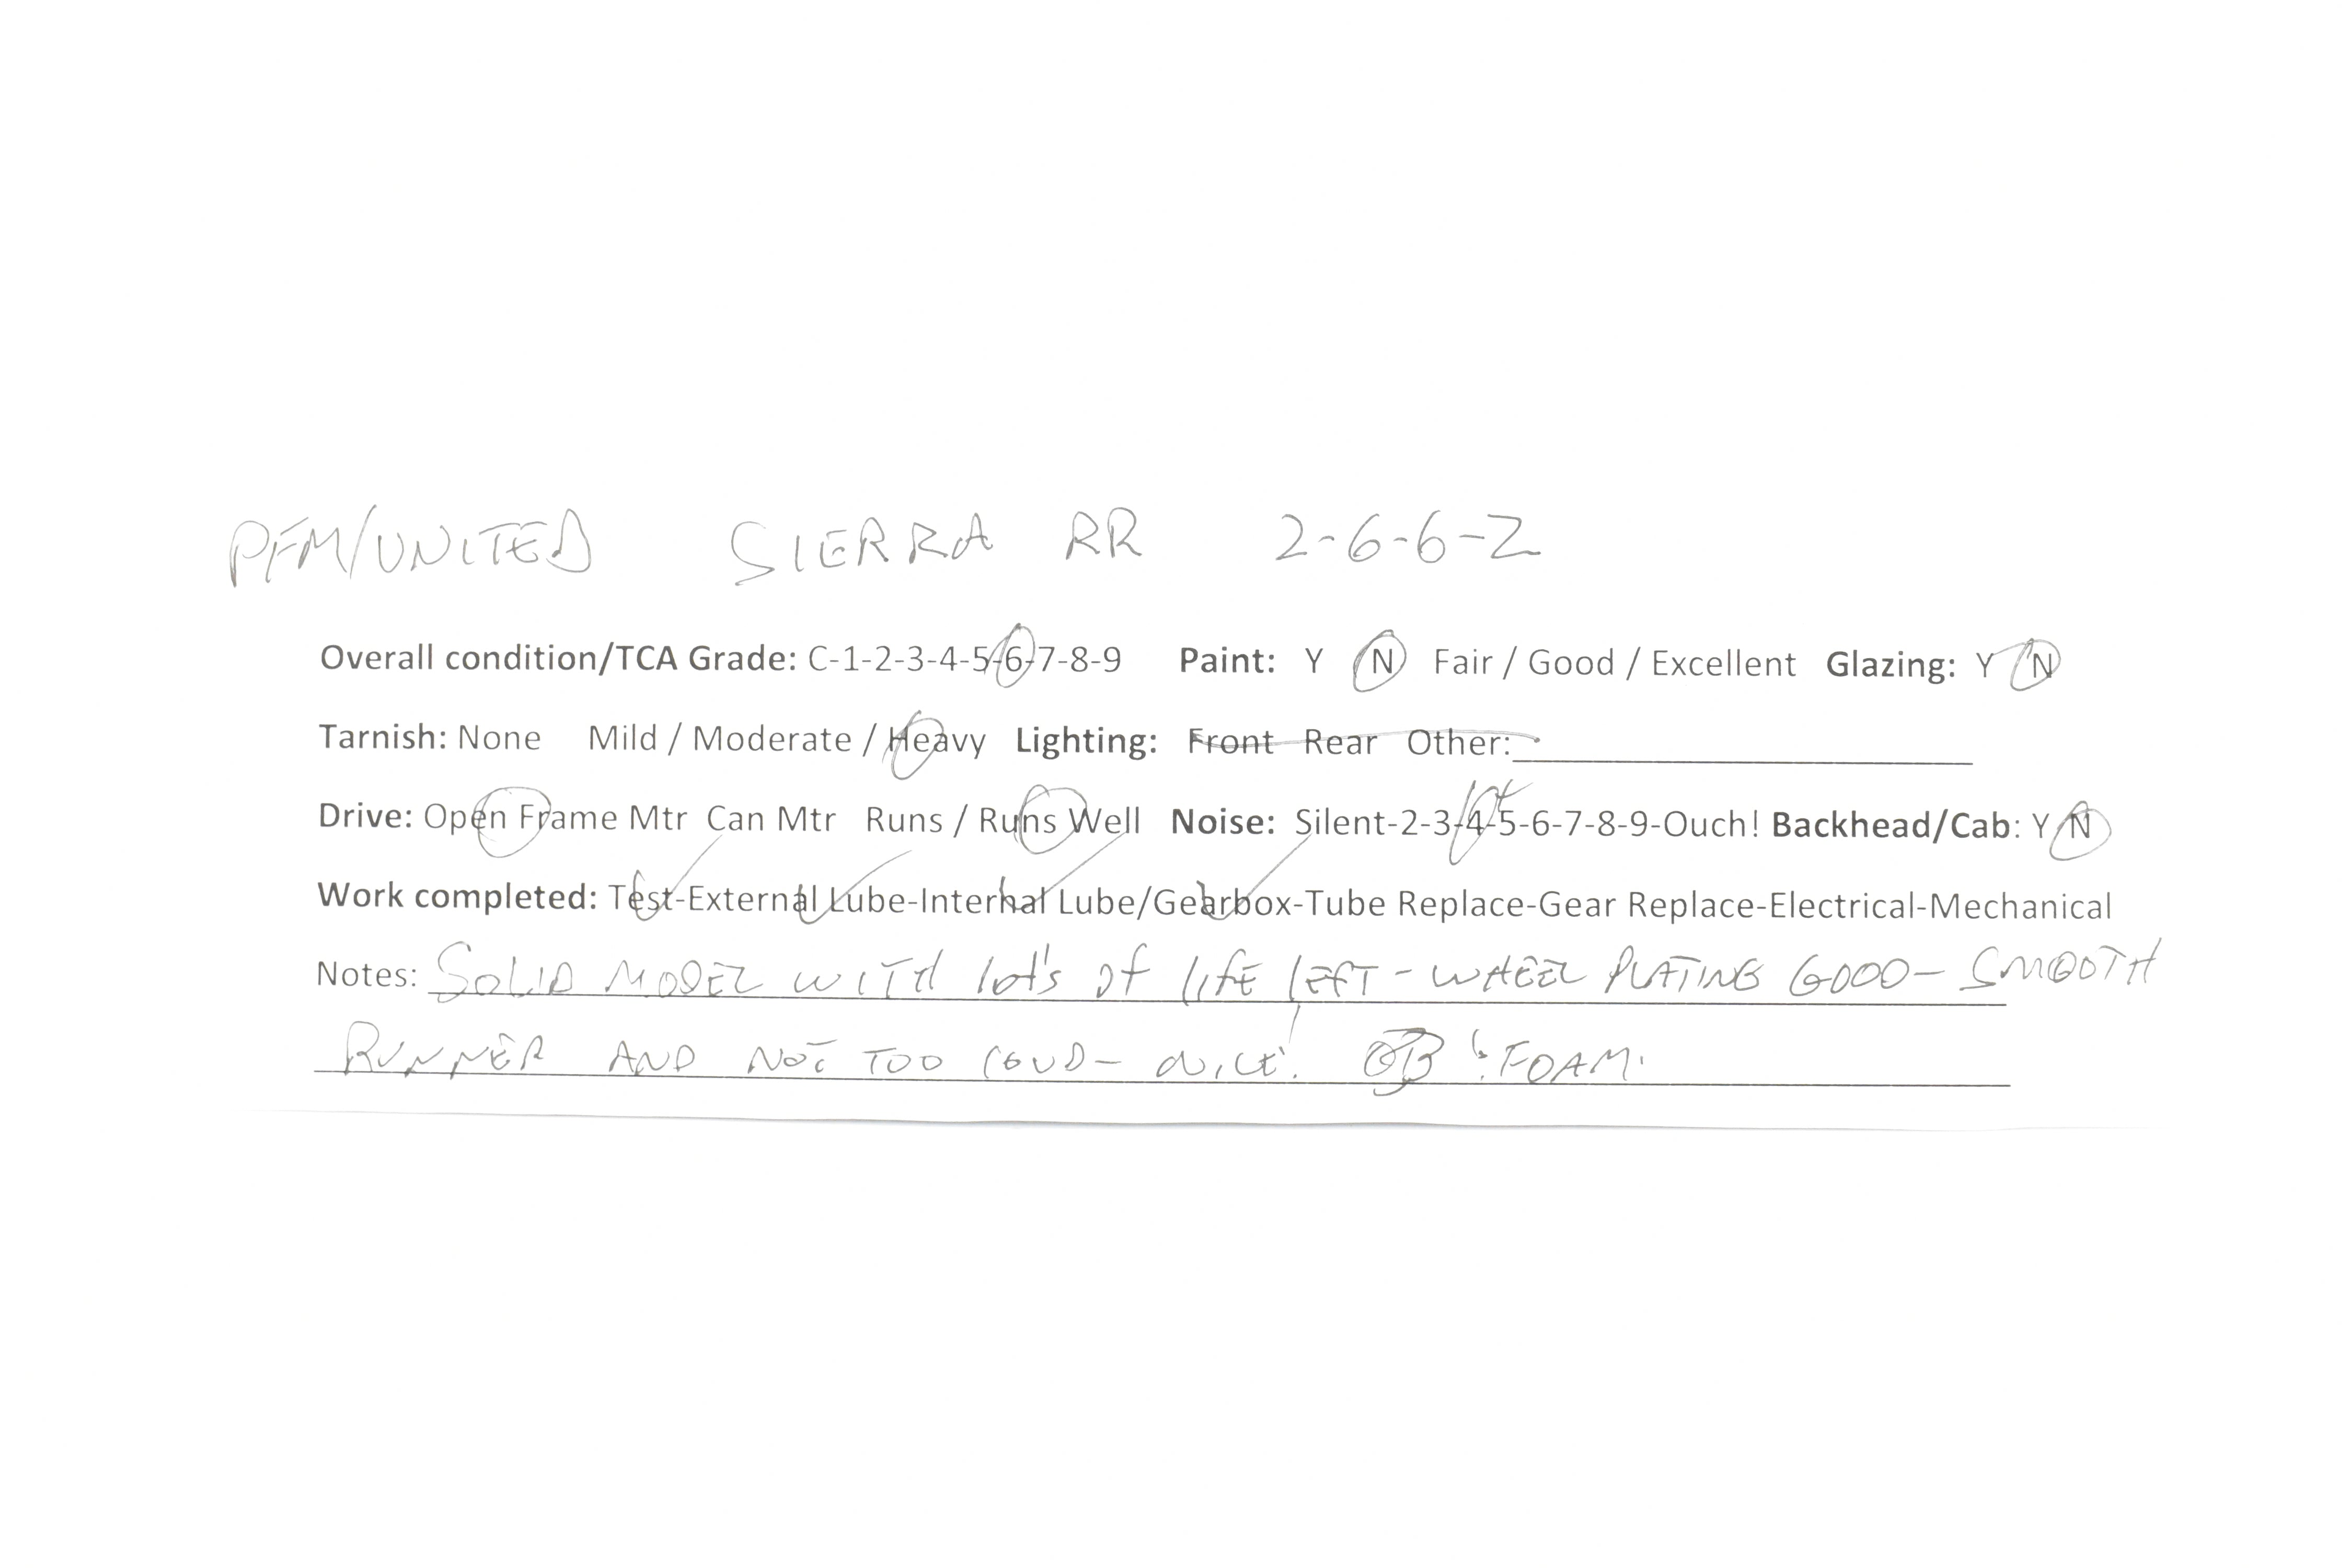 PFM/UNITED SIERRA RR 2-6-6-2
Overall condition/TCA Grade: C-1-2-3-4-5-6-7-8-9 Paint: Y N Fair / Good / Excellent Glazing: Y N
Tarnish: None Mild / Moderate / Heavy Lighting: Front Rear Other:
Drive: Open Frame Mtr Can Mtr Runs / Runs Well Noise: Silent-2-3-4-5-6-7-8-9-Ouch! Backhead/Cab: Y N
Work completed: Test-External Lube-Internal Lube/Gearbox-Tube Replace-Gear Replace-Electrical-Mechanical
Notes: SOLID MODEL WITH lot's of lIfE lEfT - WHEEL PLATING GOOD - SMOOTH
RUNNER AND NOT TOO LOUD - NICE! OB & FOAM.